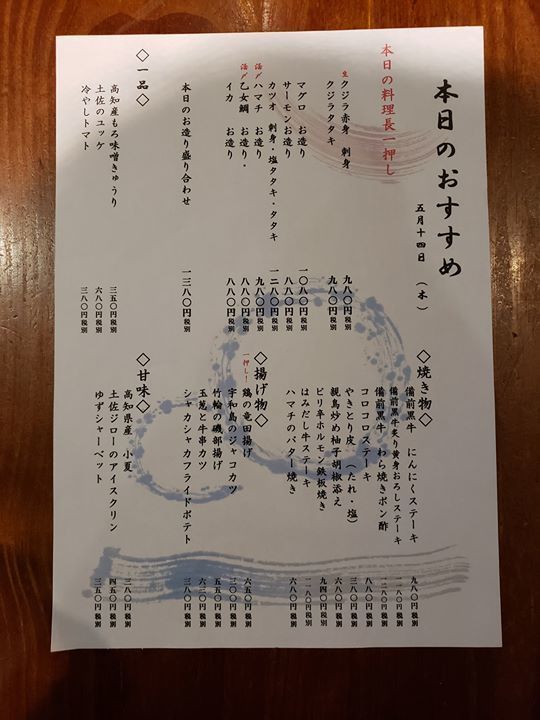 本日のおすすめ
五月十四日 (木)
本日の料理長一押し
生クジラ赤身 刺身 九八〇円税別
クジラタタキ 九八〇円税別
マグロ お造り 一〇八〇円税別
サーモンお造り 八八〇円税別
カツオ 刺身・塩タタキ・タタキ 一二八〇円税別
活〆ハマチ お造り 九八〇円税別
活〆乙女鯛 お造り・ 八八〇円税別
イカ お造り 八八〇円税別
本日のお造り盛り合わせ 一三八〇円税別
◇一品◇
高知産もろ味噌きゅうり 三五〇円税別
土佐のユッケ 六八〇円税別
冷やしトマト 三八〇円税別
◇焼き物◇
備前黒牛 にんにくステーキ 九八〇円税別
備前黒牛炙り黄身おろしステーキ 一一八〇円税別
備前黒牛 わら焼きポン酢 一二八〇円税別
コロコロステーキ 八八〇円税別
やきとり皮 (たれ・塩) 三八〇円税別
親鳥炒め柚子胡椒添え 六八〇円税別
ピリ辛ホルモン鉄板焼き 九四〇円税別
はみだし牛ステーキ 一一八〇円税別
ハマチのバター焼き 六八〇円税別
◇揚げ物◇
一押し!鶏の竜田揚げ 六五〇円税別
宇和島のジャコカツ 三〇〇円税別
竹輪の磯部揚げ 五五〇円税別
玉葱と牛串カツ 六三〇円税別
シャカシャカフライドポテト 三八〇円税別
◇甘味◇
高知県産 小夏 三八〇円税別
土佐ジローのアイスクリン 四五〇円税別
ゆずシャーベット 三五〇円税別